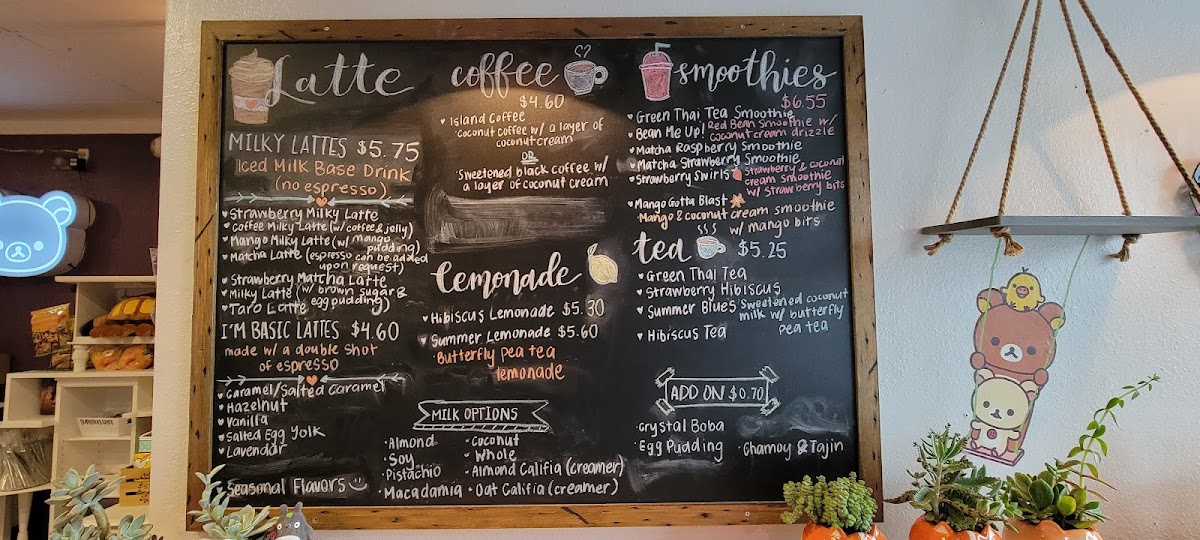 Latte
MILKY LATTES $5.75
Iced Milk Base Drink
(no espresso)
Strawberry Milky Latte
Coffee Milky Latte (w/ coffee & jelly)
Mango Milky Latte (w/ mango
pudding)
Matcha Latte (espresso can be added
upon request)
Strawberry Matcha Latte
Milky Latte (w/ brown sugar &
egg pudding)
Taro Latte
I'M BASIC LATTES $4.60
made w/ a double shot
of espresso
Caramel/Salted Caramel
Hazelnut
Vanilla
Salted Egg Yolk
Lavendar
Seasonal Flavors
coffee
$4.60
Island Coffee
Coconut coffee w/ a layer of
coconut cream
OR
Sweetened black coffee w/
a layer of coconut cream
lemonade
Hibiscus Lemonade $5.30
Summer Lemonade $5.60
Butterfly pea tea
lemonade
MILK OPTIONS
Almond
Soy
Pistachio
Macadamia
Coconut
Whole
Almond Califia (creamer)
Oat Califia (creamer)
smoothies
$6.55
Green Thai Tea Smoothie
Bean Me Up! Red Bean Smoothie w/
coconut cream drizzle
Matcha Raspberry Smoothie
Matcha Strawberry Smoothie
Strawberry Swirls Strawberry & coconut
cream smoothie
w/ strawberry bits
Mango Gotta Blast
Mango & coconut cream smoothie
w/ mango bits
tea $5.25
Green Thai Tea
Strawberry Hibiscus
Summer Blues Sweetened coconut
milk w/ butterfly
pea tea
Hibiscus Tea
ADD ON $0.70
Crystal Boba
Egg Pudding
Chamoy & Tajin